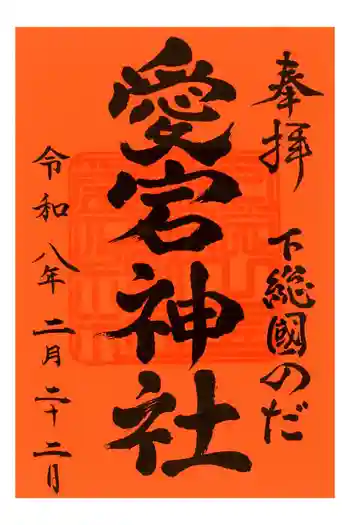 奉拝
下総國のだ
愛宕神社
令和八年二月二十二日